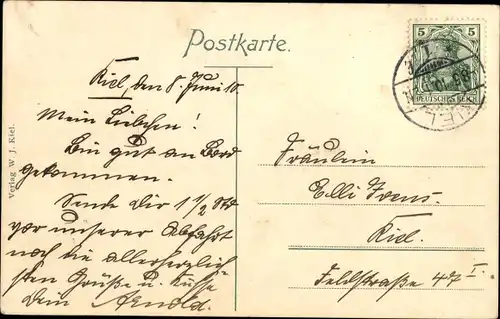 Postkarte.
Kiel, den 8 Juni 10.
Mein Liebchen!
Bin gut an Bord
gekommen.
Sende Dir 1 1/2 Std
vor unserer Abfahrt
noch die allerherzlich
sten Grüße u. Küsse
Dein Arnold.
Fräulein
Elli
Kiel.
Feldstraße 47 I.
Verlag W. J. Kiel.
5 5
DEUTSCHES REICH
KIEL